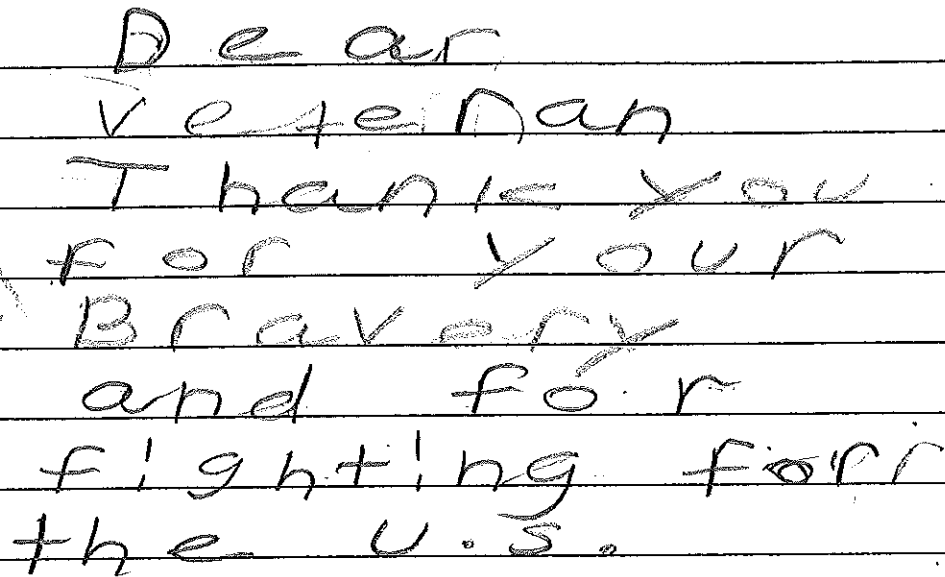 Dear
Veteran
Thank you
for your
Bravery
and for
fighting forr
the U.S.